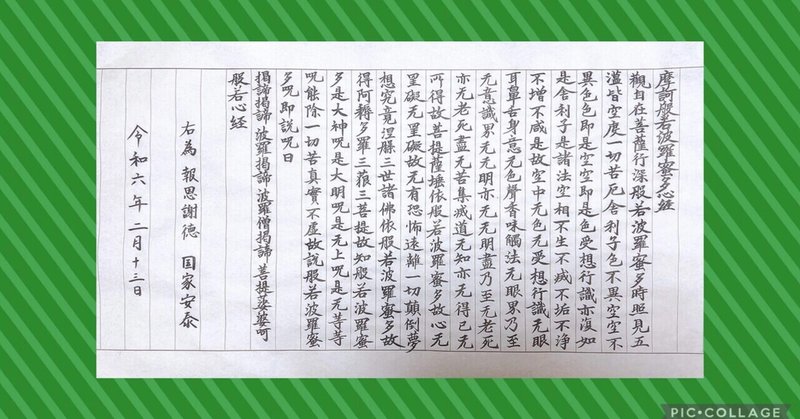 摩訶般若波羅蜜多心経
觀自在菩薩行深般若波羅蜜多時照見五
蘊皆空度一切苦厄舎利子色不異空空不
異色色即是空空即是色受想行識亦復如
是舎利子是諸法空相不生不滅不垢不浄
不増不減是故空中无色无受想行識无眼
耳鼻舌身意无色聲香味觸法无眼界乃至
无意識界无无明亦无无明盡乃至无老死
亦无老死盡无苦集滅道无知亦无得已无
所得故菩提薩埵依般若波羅蜜多故心无
罣礙无罣礙故无有恐怖遠離一切顛倒夢
想究竟涅槃三世諸佛依般若波羅蜜多故
得阿耨多羅三藐三菩提故知般若波羅蜜
多是大神呪是大明呪是无上呪是无等等
呪能除一切苦真實不虚故説般若波羅蜜
多呪即説呪曰
揭諦揭諦 波羅揭諦 波羅僧揭諦 菩提娑婆呵
般若心経
右為 報恩謝徳 国家安泰
令和六年二月十三日
PIC•COLLAGE